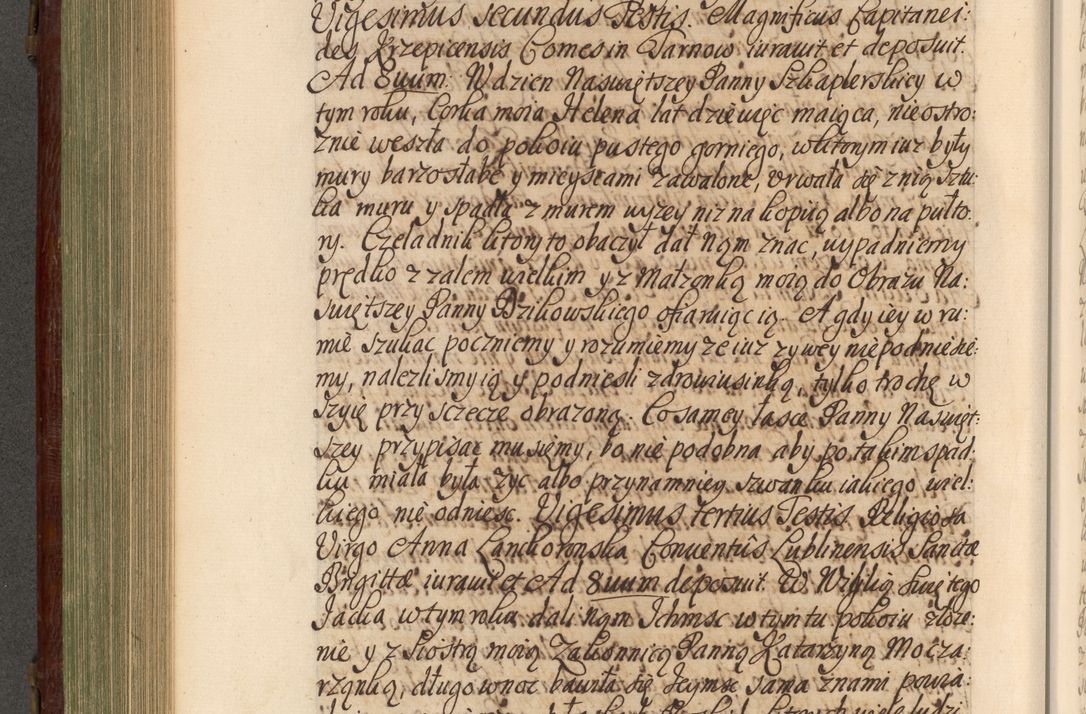 Vigesimus secundus Testis Magnificus Capitanei:
des Krzepicensis Comes in Tarnow iurauit et deposuit.
Ad 8uum. W dzien Naswiętszey Panny Szkaplerskiey w
tym roku, Corka moia Helena lat dziewięc maiąca, nieostro:
znie weszła do pokoiu pustego gorniego, w ktorym iuz były
mury barzo słabe y mieyscami zawalone, vrwała się z nią sztu:
ka muru y spadła z murem wyzey niz na kopiią albo na pułto:
ry. Czeladnik ktory to obaczył dał nąm znac, wypadniemy
prędko z zalem wielkim y z Małzonką moią do Obrazu Na:
swiętszey Panny Dzikowskiego ofiaruiąc ią. A gdy iey w ru:
mie szukac poczniemy y rozumiemy ze iuz zywey niepodniesie:
my, nalezlismy ią y podniesli zdrowiusinką, tylko trochę w
szyię przy sczęce obrazoną. Co samey łasce Panny Naswięt:
szey przypisac musięmy, bo nie podobna aby po takim spad:
ku miała była zyc albo przynamniey szwanku iakiego wiel:
kiego nie odniesc. Vigesimus tertius Testis Religiosa
Virgo Anna Lanckoronska Conuentûs Lublinensis Sanctæ
Brigittæ iurauit et Ad 8uum deposuit. W Wigilią swiętego
Jacka w tym roku dali nąm Ichmsc w tym tu pokoiu złoze:
nie y z Siostrą moią Zakonnicą Panną Katarzyną Mocza:
rząnką, długo w noc bawiła się Ieymsc sama z nami powia: